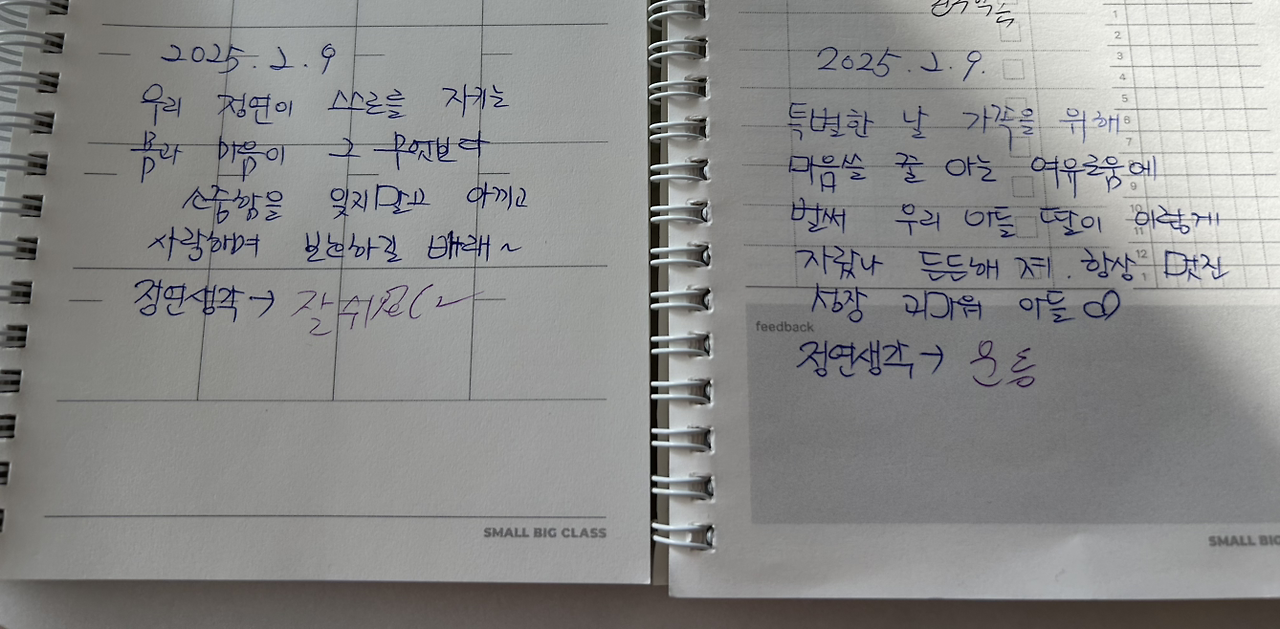 2025. 2. 9
우리 정연이 스스로를 지키는
몸과 마음이 그 무엇보다
신중함을 잊지말고 아끼고
사랑하며 보호하길 바래~
정연생각→
SMALL BIG CLASS
1
2
3
4
5
6
7
8
9
10
11
12
1
2025. 2. 9.
특별한 날 가족을 위해
마음쓸 줄 아는 여유로움에
벌써 우리 아들 딸이 이렇게
자랐나 든든해 져. 항상 멋진
성장 고마워 아들
feedback
정연생각→ 운동
SMALL BIG